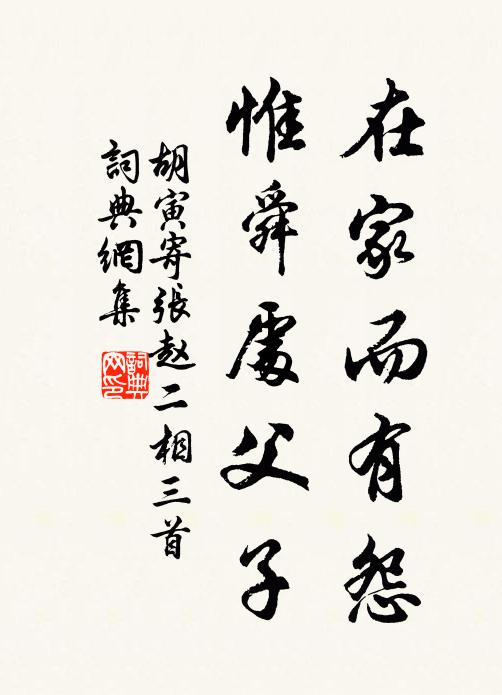 在家而有怨
惟舜處父子
胡寅寄張赵二相三首
詞典網集
詞典网印